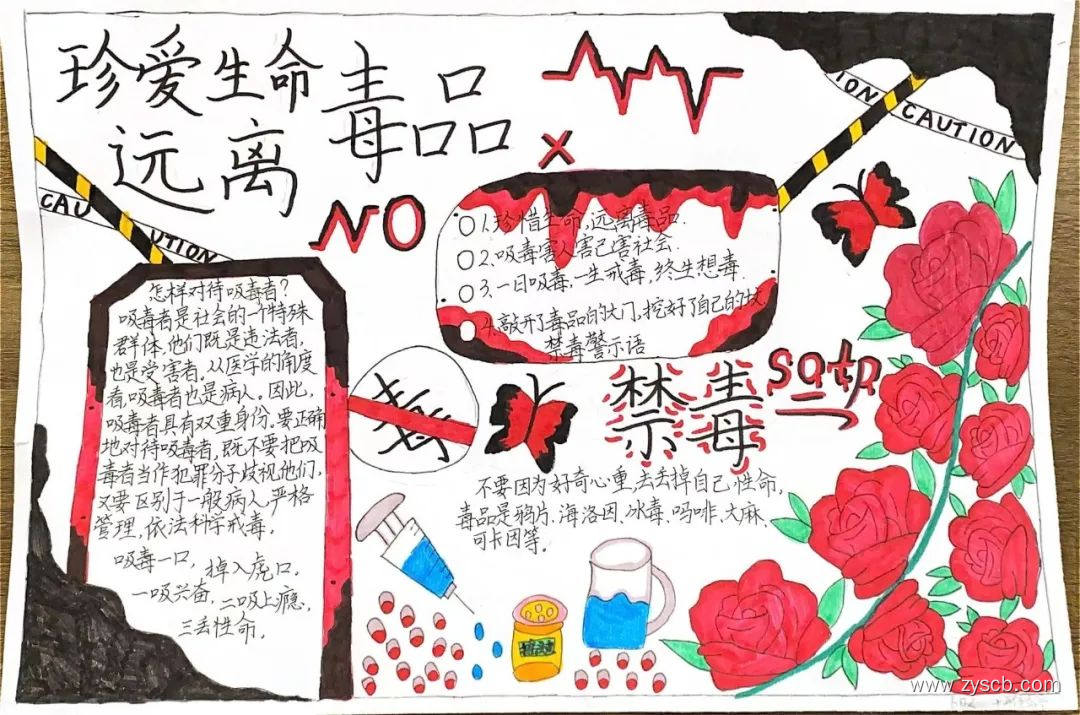 珍爱生命
远离毒品
NO
CAU
UTION
ION
CAUTION
1.珍惜生命,远离毒品.
2.吸毒害人害己害社会.
3.一日吸毒.一生戒毒,终生想毒.
4.敲开了毒品的大门,挖好了自己的坟
禁毒警示语
怎样对待吸毒者?
吸毒者是社会的一个特殊
群体,他们既是违法者,
也是受害者.从医学的角度
看,吸毒者也是病人.因此,
吸毒者具有双重身份.要正确
地对待吸毒者,既不要把吸
毒者当作犯罪分子歧视他们,
又要区别于一般病人,严格
管理,依法科学戒毒.
吸毒一口,掉入虎口.
一吸兴奋,二吸上瘾,
三丢性命.
毒
禁毒
不要因为好奇心重,去丢掉自己性命,
毒品是鸦片.海洛因.冰毒.吗啡.大麻.
可卡因等.
www.zyscb.com